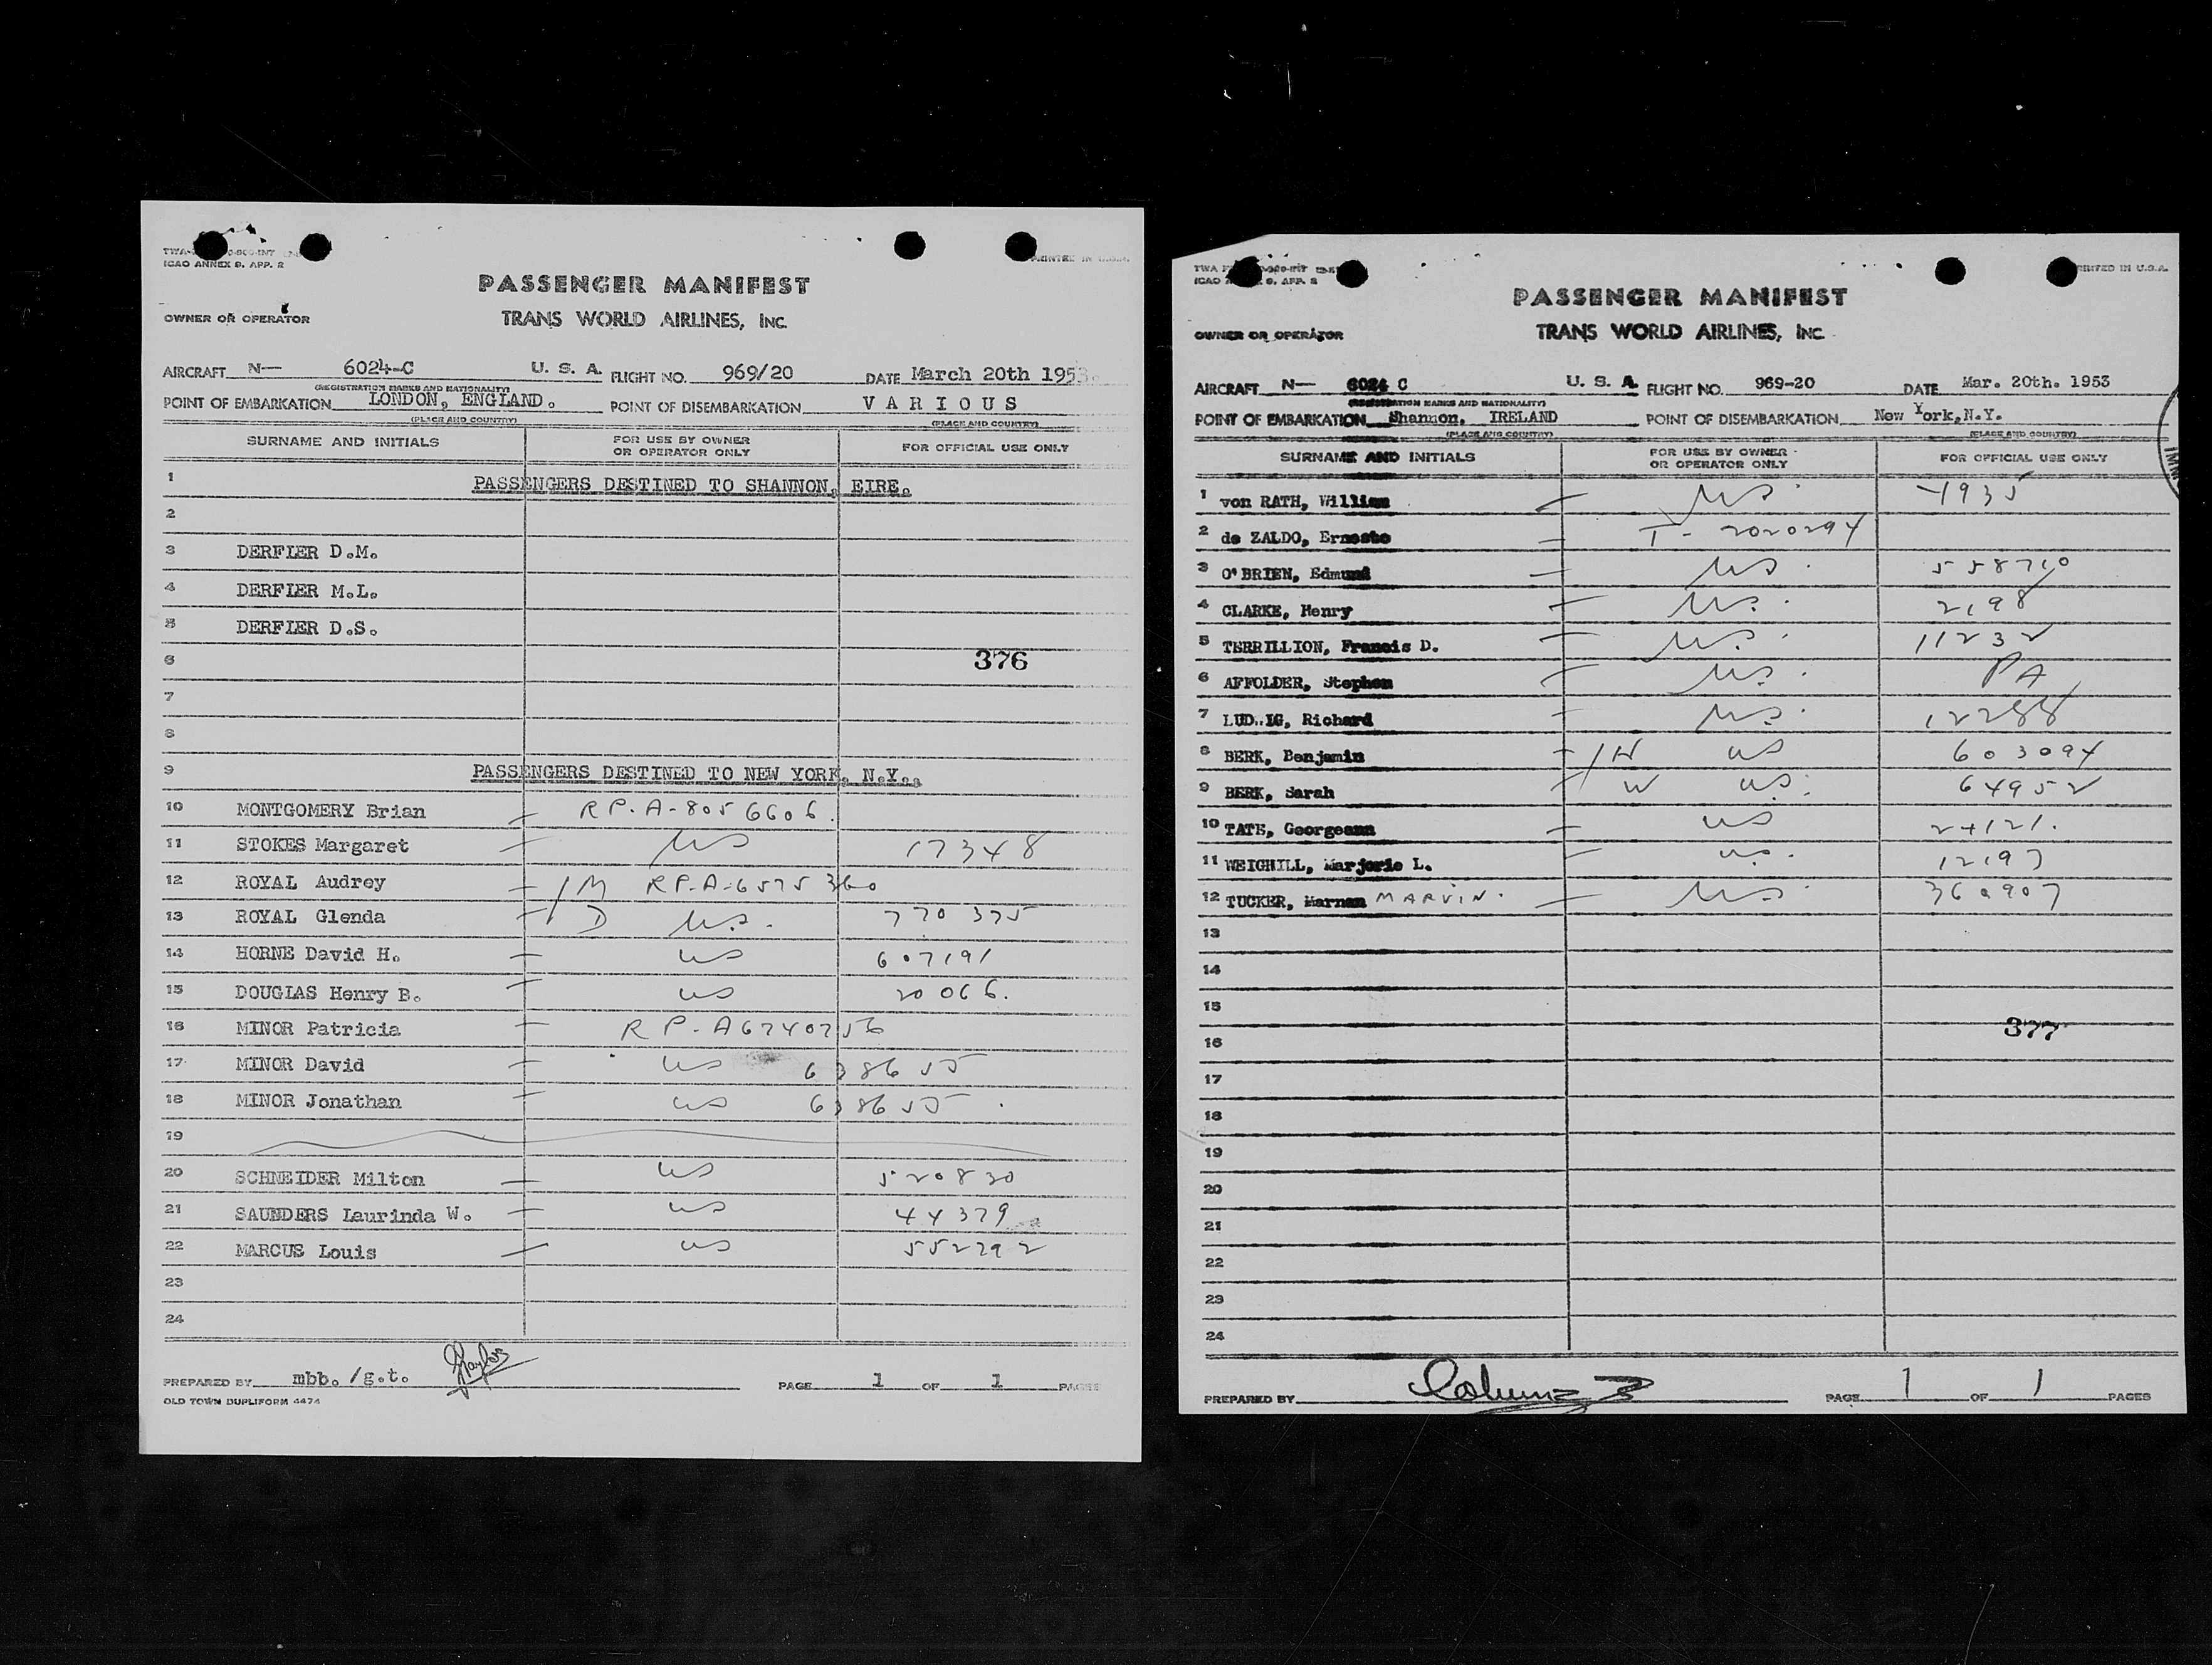 ICAO ANNEX 9. APP. 2
PRINTED IN U.S.A.
PASSENGER MANIFEST
OWNER OR OPERATOR TRANS WORLD AIRLINES, INC.
AIRCRAFT N— 6024-C U. S. A. FLIGHT NO. 969/20 DATE March 20th 1953
(REGISTRATION MARKS AND NATIONALITY)
POINT OF EMBARKATION LONDON, ENGLAND. POINT OF DISEMBARKATION VARIOUS
(PLACE AND COUNTRY) (PLACE AND COUNTRY)
SURNAME AND INITIALS FOR USE BY OWNER OR OPERATOR ONLY FOR OFFICIAL USE ONLY
1 PASSENGERS DESTINED TO SHANNON, EIRE.
2
3 DERFIER D.M.
4 DERFIER M.L.
5 DERFIER D.S.
6 376
7
8
9 PASSENGERS DESTINED TO NEW YORK, N.Y.
10 MONTGOMERY Brian — R P. A-8056606.
11 STOKES Margaret — US 17348
12 ROYAL Audrey — /M R P. A-6575360
13 ROYAL Glenda — / D US. 770375
14 HORNE David H. — US 607191
15 DOUGLAS Henry B. — US 20066.
16 MINOR Patricia — R P. A6740756
17 MINOR David — US 638655
18 MINOR Jonathan — US 638655
19
20 SCHNEIDER Milton — US 520830
21 SAUNDERS Laurinda W. — US 44379
22 MARCUS Louis — US 552292
23
24
PREPARED BY mbb. /g.t. PAGE 1 OF 1 PAGES
OLD TOWN DUPLIFORM 4474
PRINTED IN U.S.A.
PASSENGER MANIFEST
OWNER OR OPERATOR TRANS WORLD AIRLINES, INC.
AIRCRAFT N— 6024 C U. S. A. FLIGHT NO. 969-20 DATE Mar. 20th. 1953
(REGISTRATION MARKS AND NATIONALITY)
POINT OF EMBARKATION Shannon, IRELAND POINT OF DISEMBARKATION New York, N.Y.
(PLACE AND COUNTRY) (PLACE AND COUNTRY)
SURNAME AND INITIALS FOR USE BY OWNER OR OPERATOR ONLY FOR OFFICIAL USE ONLY
1 von RATH, William — US. -1935
2 de ZALDO, Ernesto — T- 2020294
3 O'BRIEN, Edmund — US. 558710
4 CLARKE, Henry — US. 2198
5 TERRILLION, Francis D. — US. 11232
6 AFFOLDER, Stephen — US. PA
7 LUDWIG, Richard — US. 12288
8 BERK, Benjamin — /H US 603094
9 BERK, Sarah — / W US. 64952
10 TATE, Georgeann — US 24121.
11 WEIGHILL, Marjorie L. — US. 12197
12 TUCKER, Marnan MARVIN. — US. 360907
13
14
15
16 377
17
18
19
20
21
22
23
24
PREPARED BY PAGE 1 OF 1 PAGES